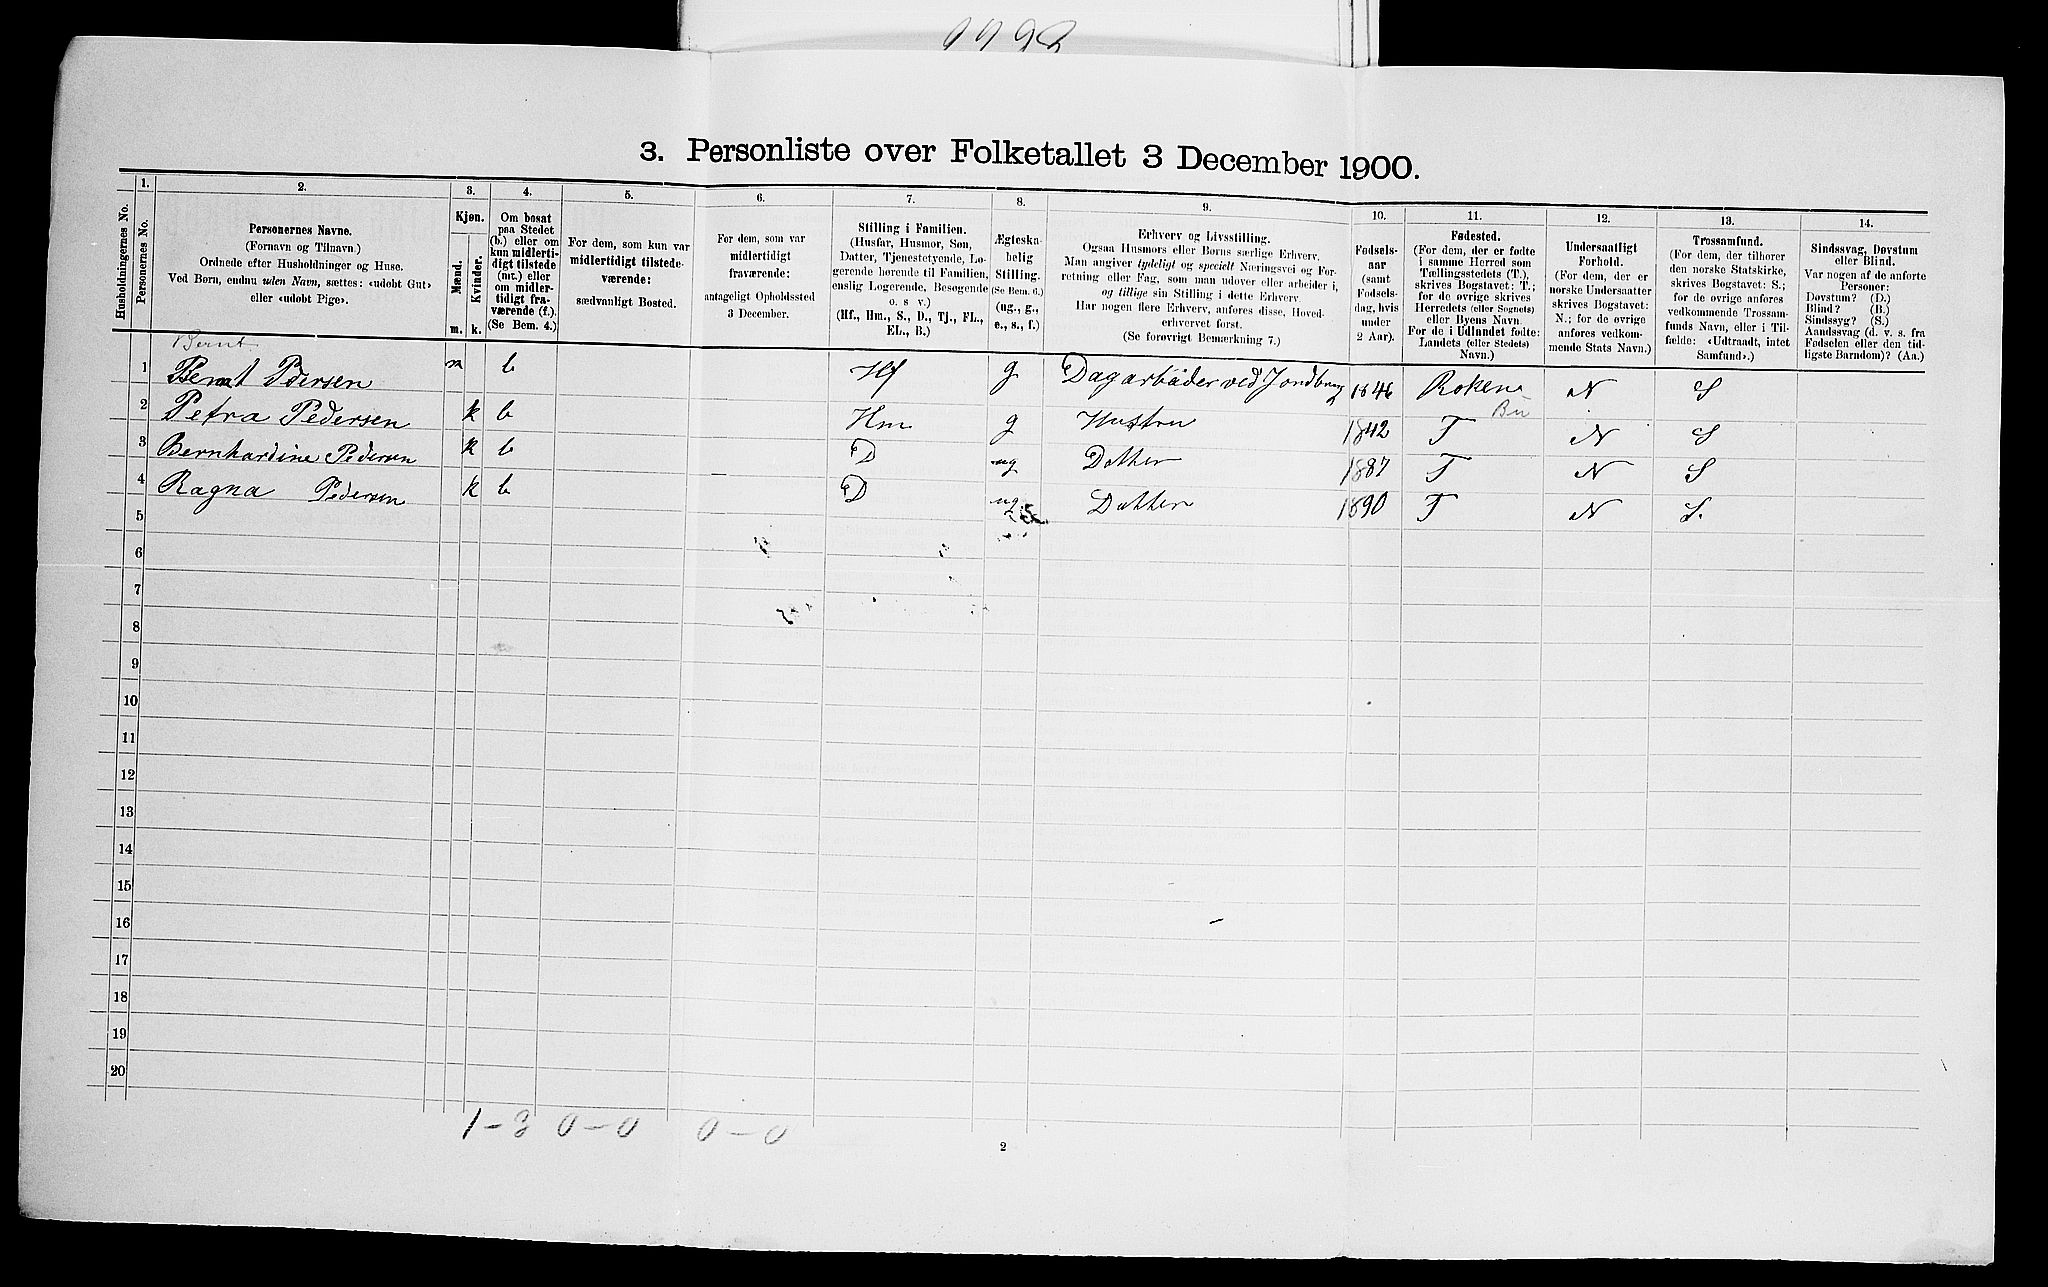 3. Personliste over Folketallet 3 December 1900.
Husholdningernes No.
1. Personernes No.
2. Personernes Navne.
(Fornavn og Tilnavn.)
Ordnede efter Husholdninger og Huse.
Ved Børn, endnu uden Navn, sættes: «udobt Gut»
eller «udobt Pige».
3. Kjøn.
Mænd. m.
Kvinder. k.
4. Om bosat
paa Stedet
(b.) eller om
kun midlerti-
digt tilstede
(mt.) eller
om midler-
tidigt fra-
værende (f.).
(Se Bem. 4.)
5. For dem, som kun var
midlertidigt tilstede-
værende:
sædvanligt Bosted.
6. For dem, som var
midlertidigt
fraværende:
antageligt Opholdssted
3 December.
7. Stilling i Familien.
(Husfar, Husmor, Søn,
Datter, Tjenestetyende, Lo-
gerende hørende til Familien,
enslig Logerende, Besøgende
o. s. v.)
(Hf., Hm., S., D., Tj., FL.,
EL., B.)
8. Ægteska-
belig
Stilling.
(Se Bem. 6.)
(ug., g.,
e., s., f.)
9. Erhverv og Livsstilling.
Ogsaa Husmors eller Børns særlige Erhverv.
Man angiver tydeligt og specielt Næringsvei og For-
retning eller Fag, som man udøver eller arbeider i,
og tillige sin Stilling i dette Erhverv.
Har nogen flere Erhverv, anføres disse, Hoved-
erhvervet først.
(Se forøvrigt Bemærkning 7.)
10. Fødsels-
aar
(samt
Fødsels-
dag, hvis
under
2 Aar).
11. Fødested.
(For dem, der er fødte
i samme Herred som
Tællingsstedets (T.),
skrives Bogstavet: T.;
for de øvrige skrives
Herredets (eller Sognets)
eller Byens Navn.
For de i Udlandet fødte:
Landets (eller Stedets)
Navn.)
12. Undersaatligt
Forhold.
(For dem, der er
norske Undersaatter
skrives Bogstavet:
N.; for de øvrige
anføres vedkom-
mende Stats Navn.)
13. Trossamfund.
(For dem, der tilhører
den norske Statskirke,
skrives Bogstavet: S.;
for de øvrige anføres
vedkommende Trossam-
funds Navn, eller i Til-
fælde: «Udtraadt, intet
Samfund».)
14. Sindssvag, Døvstum
eller Blind.
Var nogen af de anførte
Personer:
Døvstum? (D.)
Blind? (B.)
Sindssyg? (S.)
Aandssvag (d. v. s. fra
Fødselen eller den tid-
ligste Barndom)? (Aa.)
Bernt
1 Bernt Pdersen m b Hf g Dagarbäder ved Jordbrug 1846 Roken N S
Bu
2 Petra Pedersen k b Hm g Hustru 1842 T N S
3 Bernhardine Pedersen k b D ug Datter 1887 T N S
4 Ragna Pedersen k b D ug Datter 1890 T N S.
5
6
7
8
9
10
11
12
13
14
15
16
17
18
19
20
1-3 0-0 0-0
2